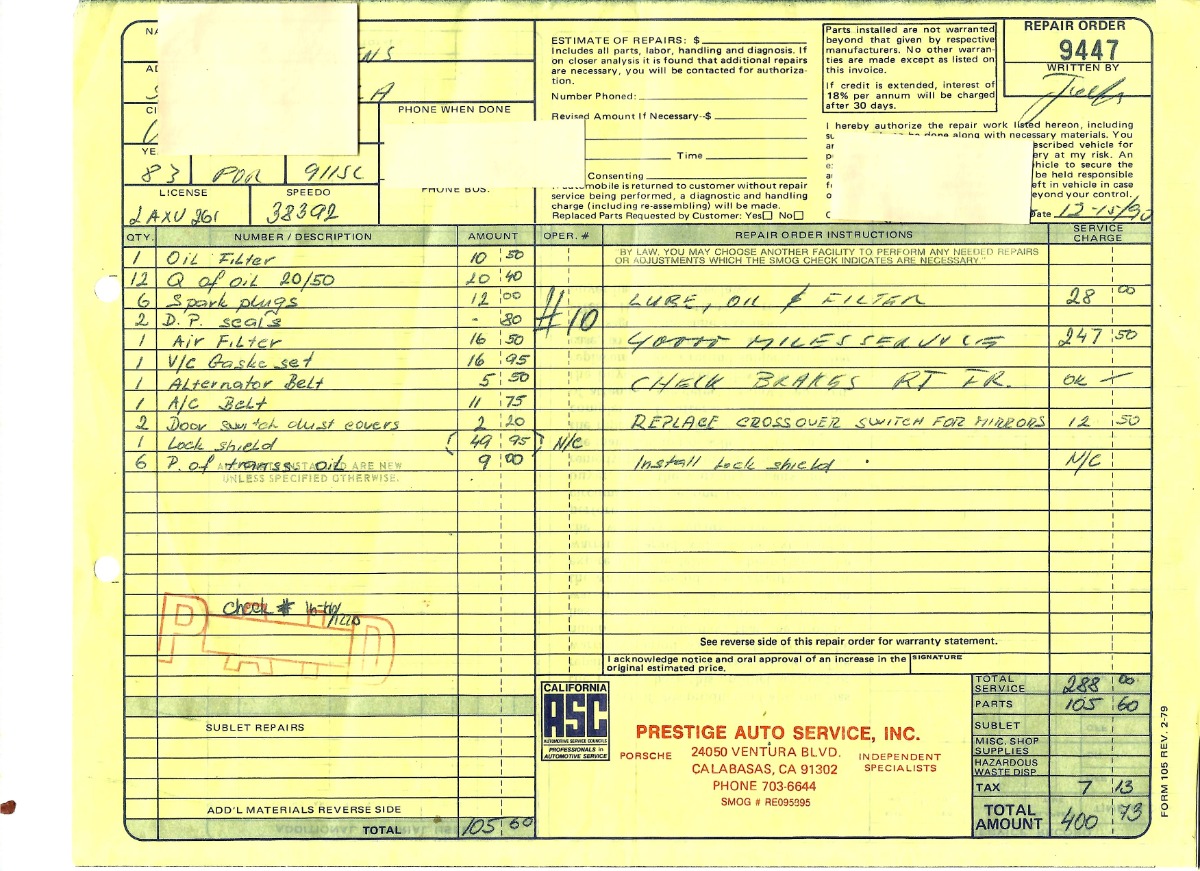 NA
ENS
AD
A
CI
YE
83 POR 911SC
PHONE WHEN DONE
PHONE BUS.
LICENSE SPEEDO
2AXU261 38392
ESTIMATE OF REPAIRS: $
Includes all parts, labor, handling and diagnosis. If
on closer analysis it is found that additional repairs
are necessary, you will be contacted for authoriza-
tion.
Number Phoned:
Revised Amount If Necessary--$
Time
Consenting
tomobile is returned to customer without repair
service being performed, a diagnostic and handling
charge (including re-assembling) will be made.
Replaced Parts Requested by Customer: Yes No
Parts installed are not warranted
beyond that given by respective
manufacturers. No other warran-
ties are made except as listed on
this invoice.
If credit is extended, interest of
18% per annum will be charged
after 30 days.
REPAIR ORDER
9447
WRITTEN BY
I hereby authorize the repair work listed hereon, including
be done along with necessary materials. You
escribed vehicle for
ery at my risk. An
hicle to secure the
be held responsible
eft in vehicle in case
eyond your control.
Date 12-15/90
QTY. NUMBER / DESCRIPTION AMOUNT OPER. # REPAIR ORDER INSTRUCTIONS SERVICE CHARGE
"BY LAW, YOU MAY CHOOSE ANOTHER FACILITY TO PERFORM ANY NEEDED REPAIRS
OR ADJUSTMENTS WHICH THE SMOG CHECK INDICATES ARE NECESSARY."
1 Oil Filter 10 50
12 Q of oil 20/50 20 40
6 Spark plugs 12 00
2 D.P. seals - 80
1 Air Filter 16 50
1 V/C Gaske set 16 95
1 Alternator Belt 5 50
1 A/C Belt 11 75
2 Door switch dust covers 2 20
1 Lock shield (49 95) N/C
6 P. of transs oil 9 00
ARE NEW
UNLESS SPECIFIED OTHERWISE.
#10
LUBE, OIL & FILTER 28 00
40000 MILES SERVICE 247 50
CHECK BRAKES RT FR. OK
REPLACE CROSSOVER SWITCH FOR MIRRORS 12 50
Install Lock shield N/C
Check #
PAID
See reverse side of this repair order for warranty statement.
I acknowledge notice and oral approval of an increase in the
original estimated price.
SIGNATURE
SUBLET REPAIRS
ADD'L MATERIALS REVERSE SIDE
TOTAL 105 60
CALIFORNIA
ASC
AUTOMOTIVE SERVICE COUNCILS
PROFESSIONALS in
AUTOMOTIVE SERVICE
PRESTIGE AUTO SERVICE, INC.
PORSCHE
24050 VENTURA BLVD.
CALABASAS, CA 91302
PHONE 703-6644
SMOG # RE095395
INDEPENDENT
SPECIALISTS
TOTAL SERVICE 288 00
PARTS 105 60
SUBLET
MISC. SHOP SUPPLIES
HAZARDOUS WASTE DISP.
TAX 7 13
TOTAL AMOUNT 400 73
FORM 105 REV. 2-79